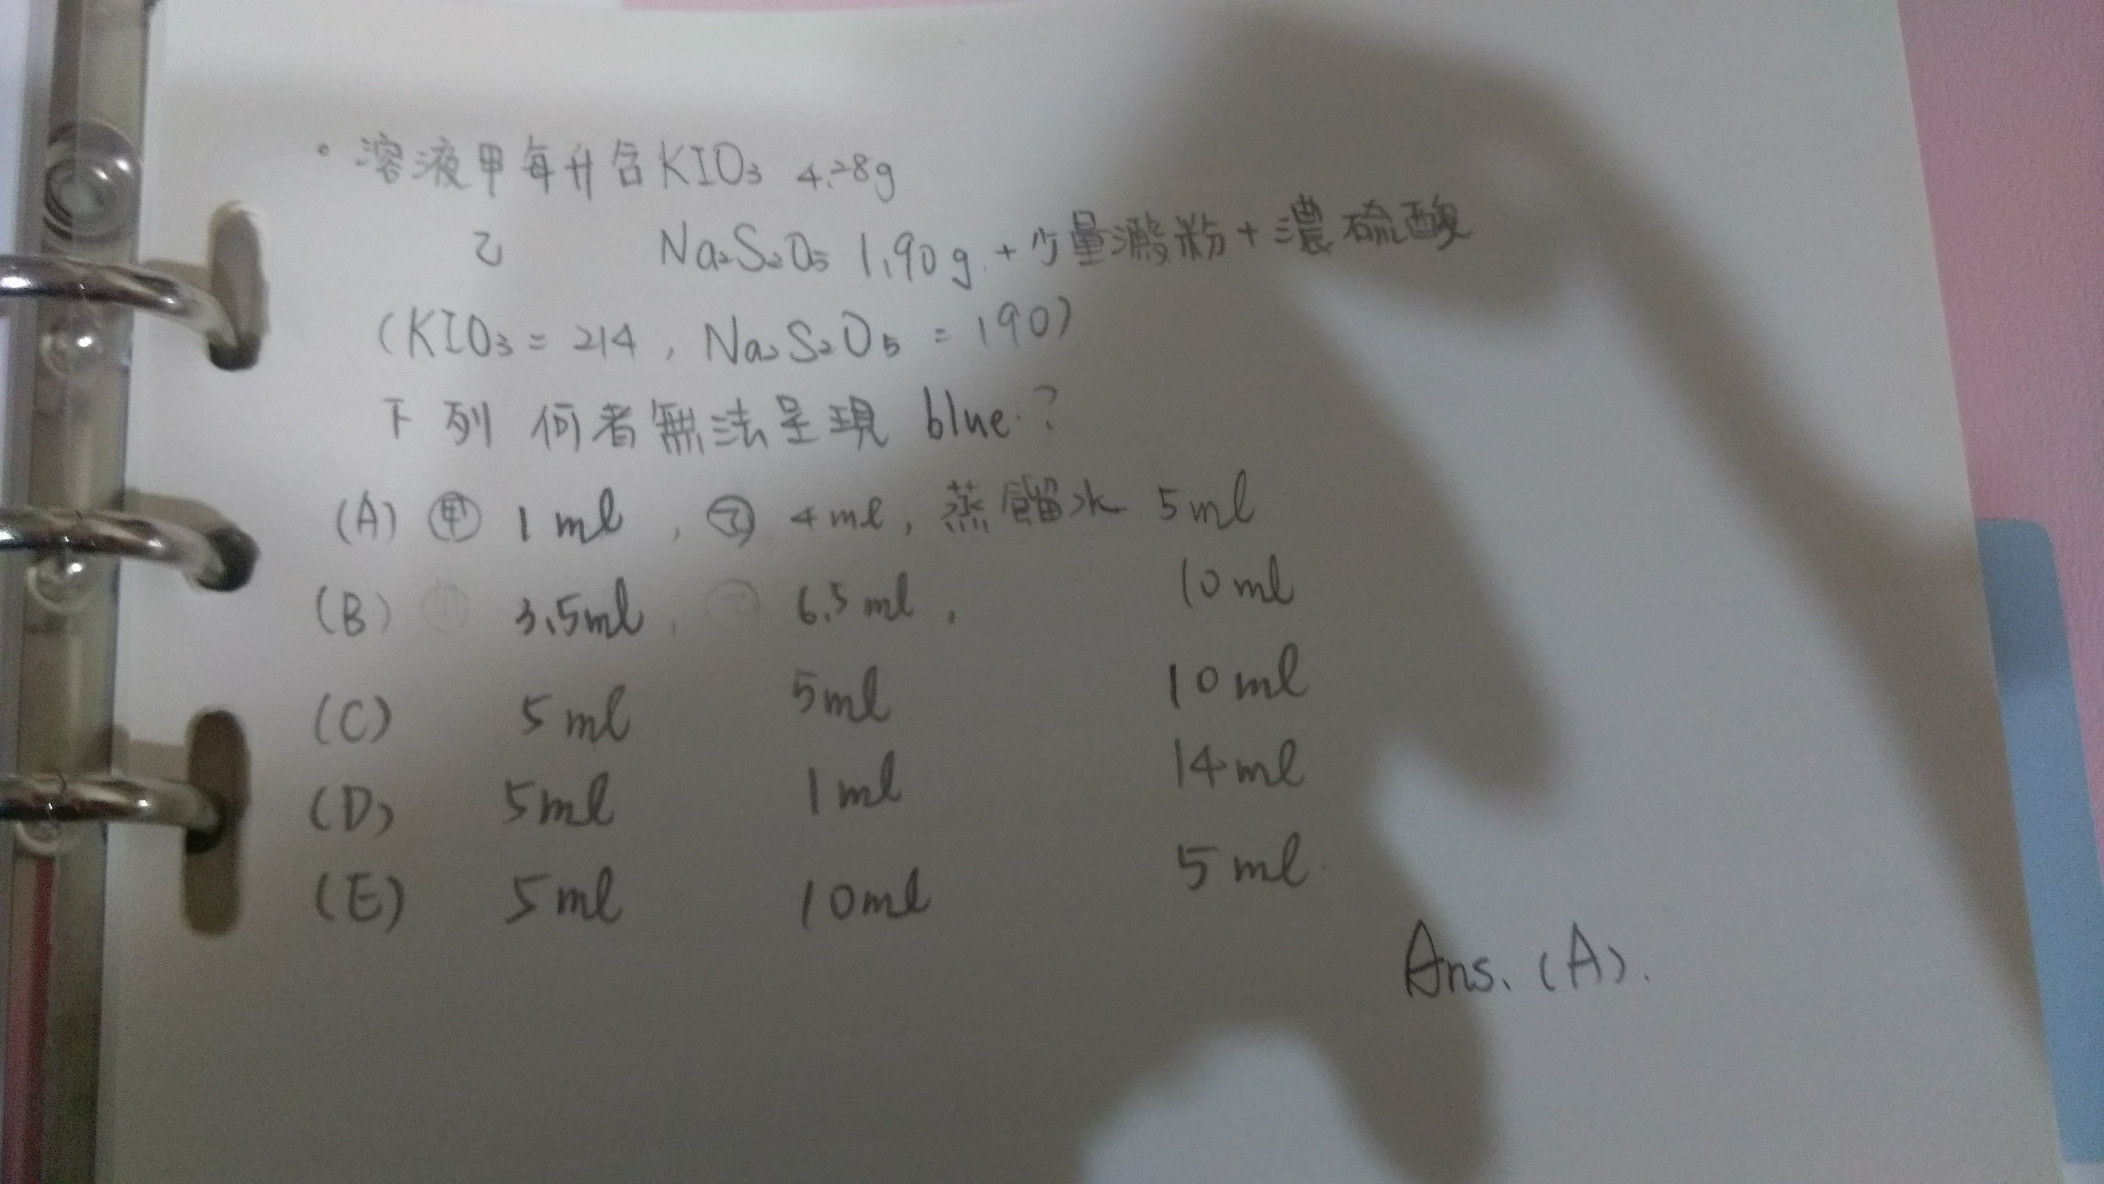 。溶液甲每升含KIO₃ 4.28g
乙 Na₂S₂O₅ 1.90g.+少量澱粉+濃硫酸
(KIO₃=214, Na₂S₂O₅=190)
下列 何者無法呈現 blue.?
(A) ㊙甲 1ml , 乙 4ml, 蒸餾水 5ml
(B) 甲 3.5ml, 乙 6.5ml, 10ml
(C) 5ml 5ml 10ml
(D) 5ml 1ml 14ml
(E) 5ml 10ml 5ml.
Ans. (A).